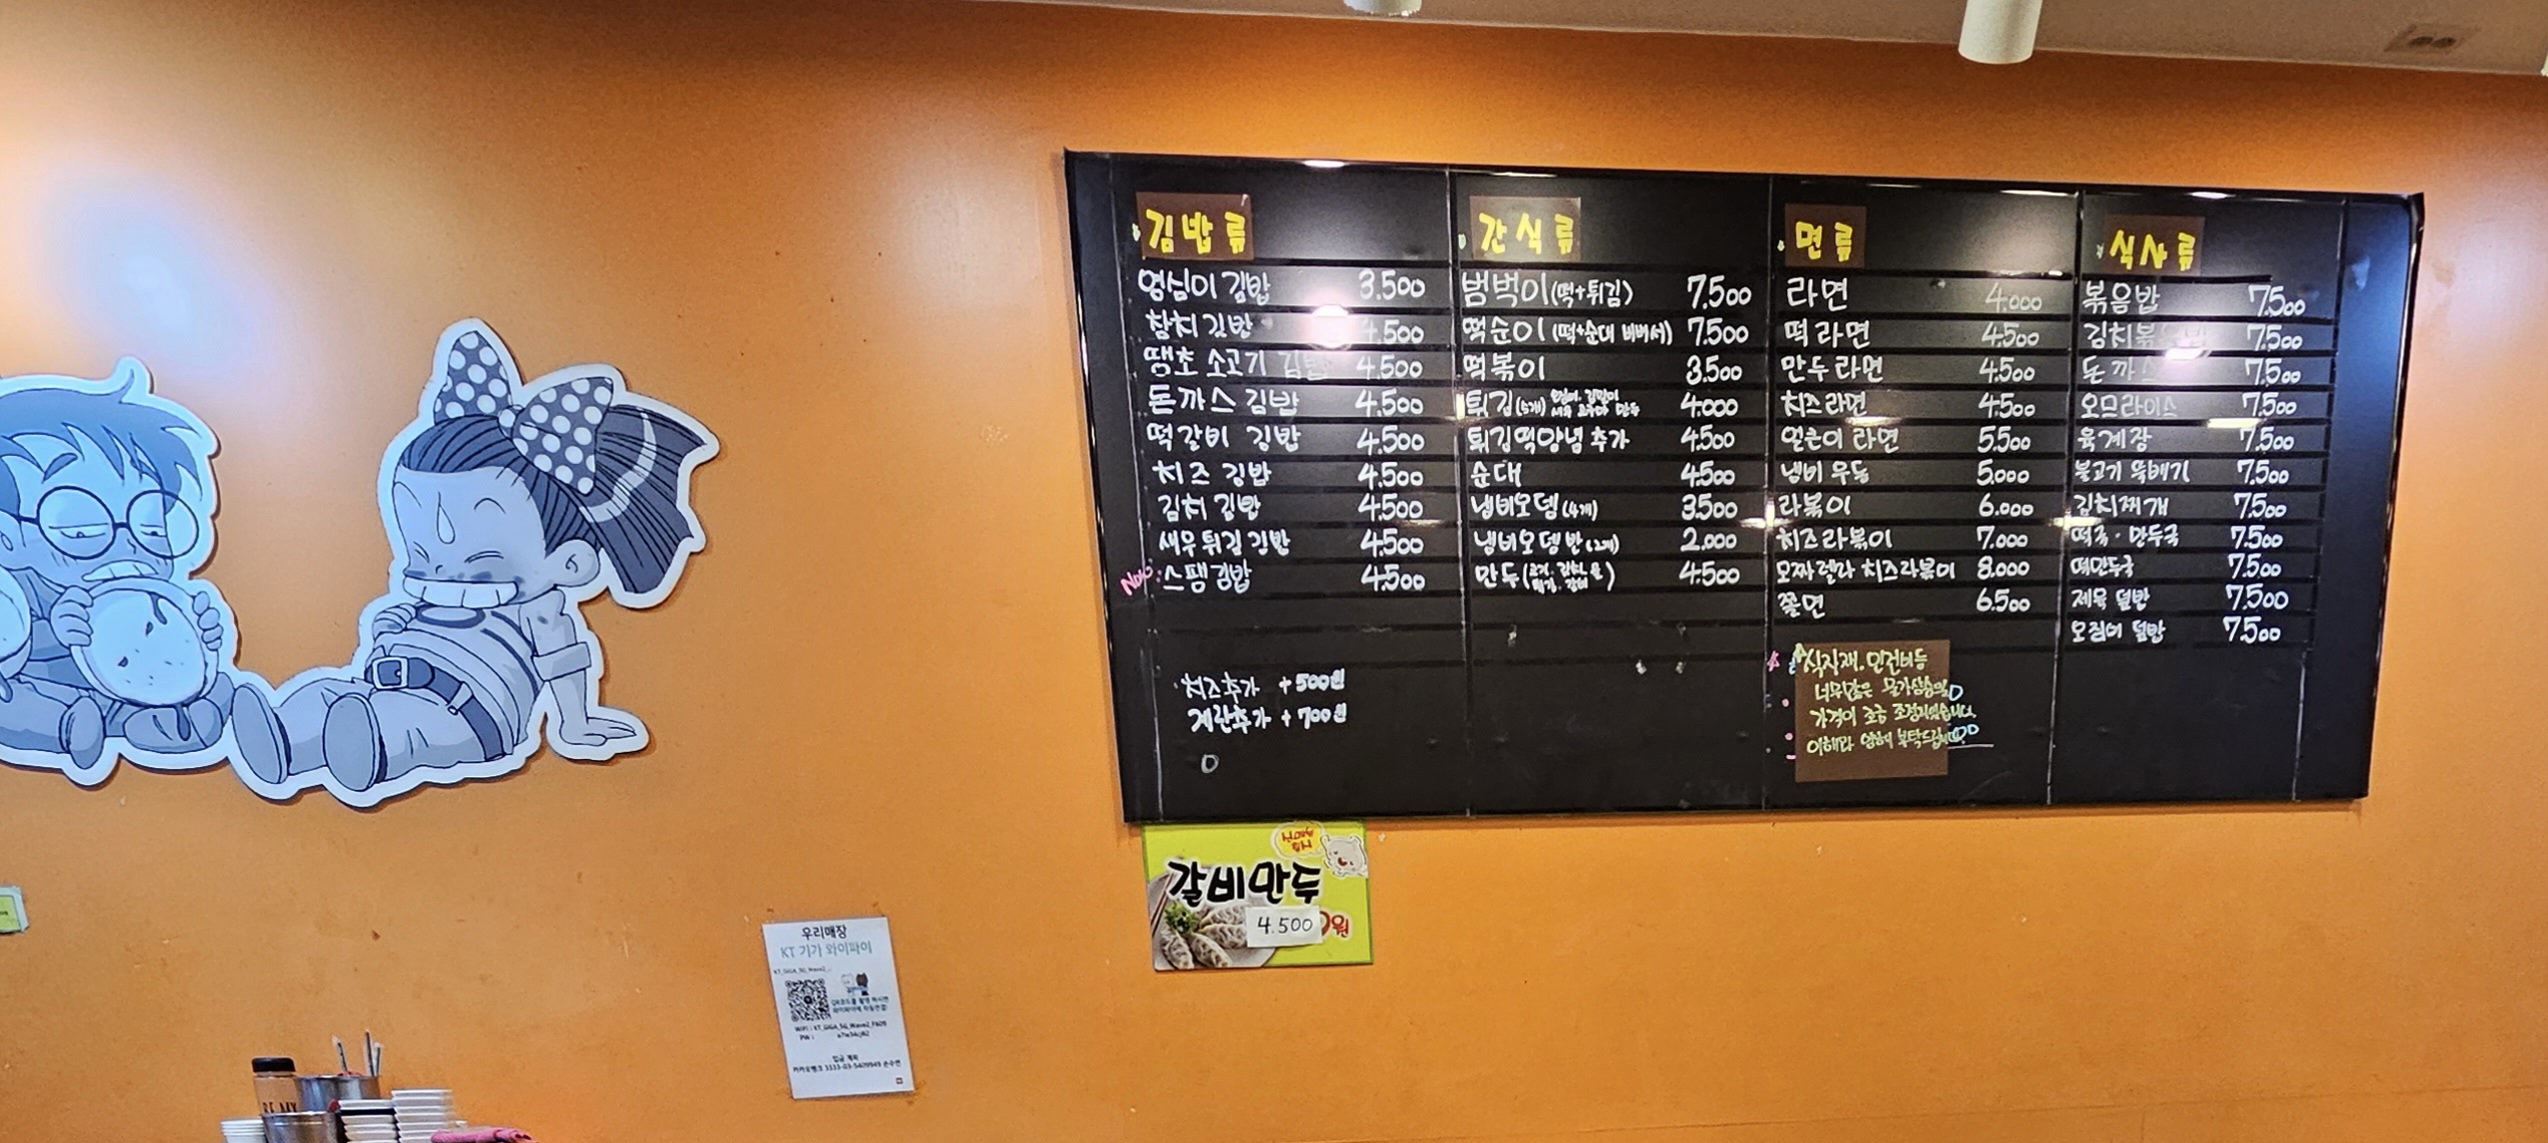 김밥류
영심이 김밥 3.500
참치 김밥 4.500
땡초 소고기 김밥 4.500
돈까스 김밥 4.500
떡갈비 김밥 4.500
치즈 김밥 4.500
김치 김밥 4.500
새우튀김 김밥 4.500
New 스팸김밥 4.500
치즈추가 +500원
계란추가 +700원
간식류
범벅이(떡+튀김) 7.500
떡순이(떡+순대 비벼서) 7.500
떡볶이 3.500
튀김(5개) 김말이 만두 4.000
튀김떡양념 추가 4.500
순대 4.500
냄비오뎅(4개) 3.500
냄비오뎅 반(2개) 2.000
만두(고기. 김치 튀김. 갈비) 4.500
면류
라면 4.000
떡라면 4.500
만두라면 4.500
치즈라면 4.500
얼큰이 라면 5.500
냄비우동 5.000
라볶이 6.000
치즈라볶이 7.000
모짜렐라 치즈라볶이 8.000
쫄면 6.500
식자재. 인건비등
너무많은 물가상승으로
가격이 조금 조정되었습니다.
이해와 부탁드립니다.
식사류
볶음밥 7.500
김치볶음밥 7.500
돈까스 7.500
오므라이스 7.500
육계장 7.500
불고기 뚝배기 7.500
김치찌개 7.500
떡국·만두국 7.500
떡만두국 7.500
제육 덮밥 7.500
오징어 덮밥 7.500
신메뉴
출시
갈비만두
4.500
원
우리매장
KT 기가 와이파이
KT_GiGA_5G_Wave2_
QR코드를 촬영 하시면
와이파이에 자동연결!
WiFi : KT_GiGA_5G_Wave2_F609
PW :
입금 계좌
카카오뱅크 3333-03-5409949 손수연